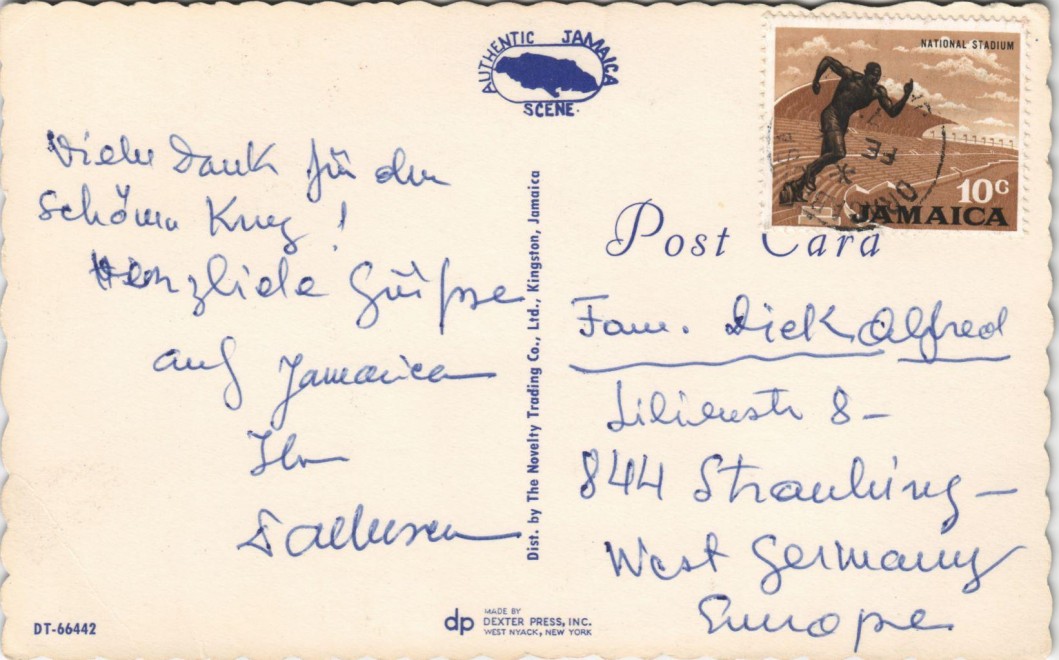 AUTHENTIC JAMAICA
SCENE
NATIONAL STADIUM
10c
JAMAICA
Post Card
Vielen Dank für den
schönen Krug!
Herzliche Grüße
auf Jamaica
Ihr
Dist. by The Novelty Trading Co., Ltd., Kingston, Jamaica
Fam. Dick Alfred
Lilienstr 8-
844 Straubing-
West Germany
Europe
DT-66442
dp MADE BY
DEXTER PRESS, INC.
WEST NYACK, NEW YORK